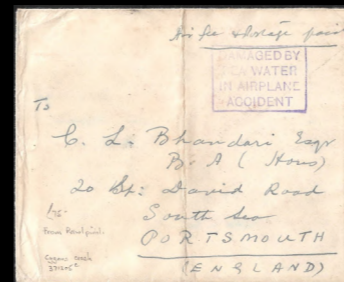 Air fee & postage paid
DAMAGED BY
SEA WATER
IN AIRPLANE
ACCIDENT
To
C. L. Bhandari Esqr
B. A (Hons)
20 St: David Road
South Sea
PORTSMOUTH
(ENGLAND)
£75-
Crash